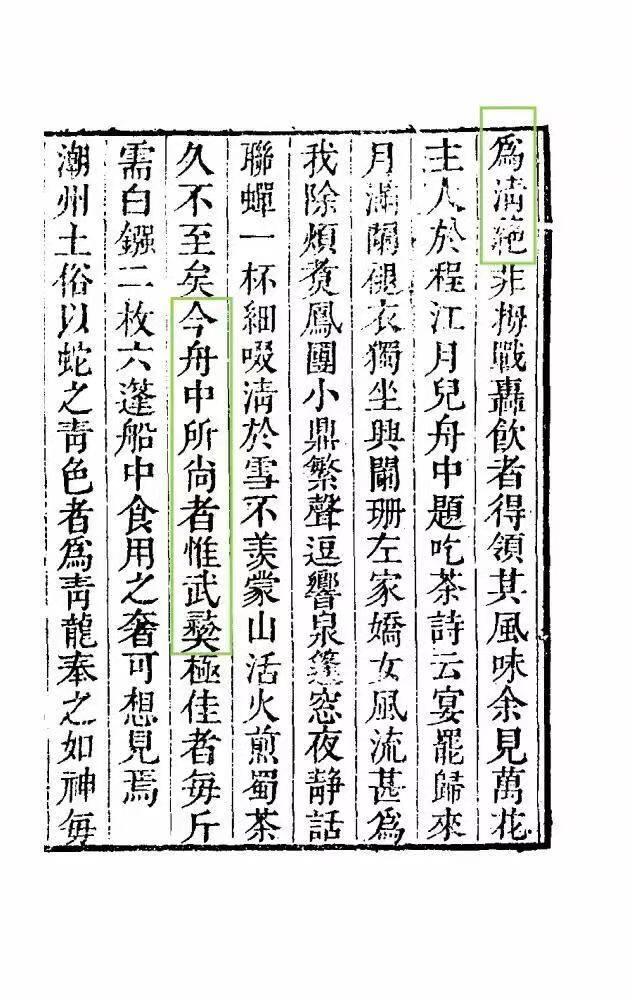 爲清絕非拇戰轟飲者得領其風味余見萬花
主人於程江月兒舟中題吃茶詩云宴罷歸來
月滿闌褪衣獨坐興闌珊左家嬌女風流甚爲
我除煩煑鳳團小鼎繁聲逗響泉篷窓夜靜話
聯蟬一杯細啜淸於雪不羡蒙山活火煎蜀茶
久不至矣今舟中所尚者惟武彝極佳者每斤
需白鏹二枚六篷船中食用之奢可想見焉
潮州土俗以蛇之靑色者爲靑龍奉之如神每